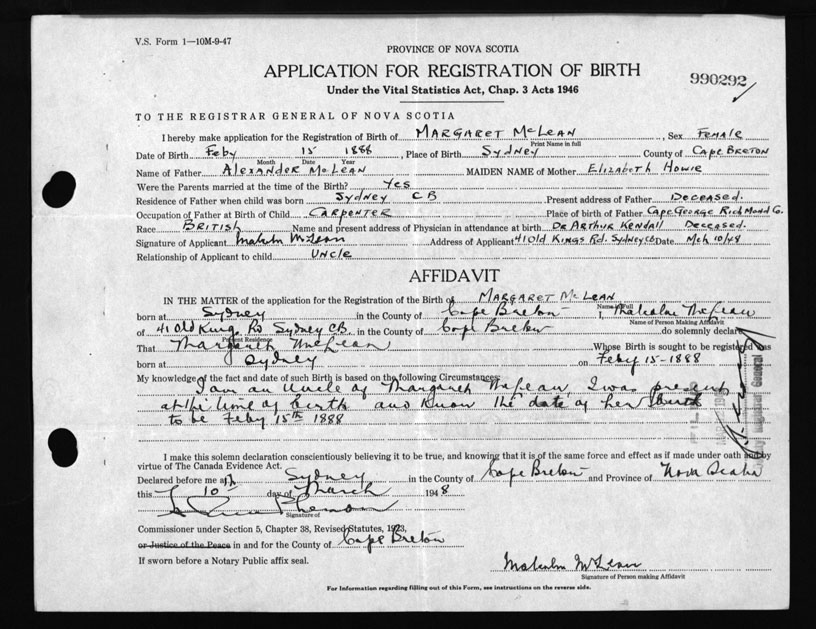 V.S. Form 1—10M-9-47
PROVINCE OF NOVA SCOTIA
APPLICATION FOR REGISTRATION OF BIRTH
990292
Under the Vital Statistics Act, Chap. 3 Acts 1946
TO THE REGISTRAR GENERAL OF NOVA SCOTIA
I hereby make application for the Registration of Birth of MARGARET McLEAN, Sex FEMALE
Print Name in full
Date of Birth Feby 15 1888, Place of Birth SYDNEY County of CAPE BRETON
Month Date Year
Name of Father ALEXANDER McLEAN MAIDEN NAME of Mother ELIZABETH HOWIE
Were the Parents married at the time of the Birth? YES
Residence of Father when child was born SYDNEY CB Present address of Father DECEASED.
Occupation of Father at Birth of Child CARPENTER Place of birth of Father CAPE GEORGE RICHMOND Co.
Race BRITISH Name and present address of Physician in attendance at birth DR ARTHUR KENDALL DECEASED.
Signature of Applicant Malcolm McLean Address of Applicant 41 Old KINGS Rd. SYDNEY CB Date Mch 10/48
Relationship of Applicant to child UNCLE
AFFIDAVIT
IN THE MATTER of the application for the Registration of the Birth of MARGARET McLEAN
Name in Full
born at Sydney in the County of Cape Breton I, Malcolm McLean
Name of Person Making Affidavit
of 41 Old Kings Rd Sydney CB in the County of Cape Breton do solemnly declare
Present Residence
That Margaret McLean Whose Birth is sought to be registered was
born at Sydney on Feby 15-1888
My knowledge of the fact and date of such Birth is based on the following Circumstances:
I am an Uncle of Margaret McLean, I was present
at the time of birth and know the date of her birth
to be Feby 15th 1888
I make this solemn declaration conscientiously believing it to be true, and knowing that it is of the same force and effect as if made under oath and by
virtue of The Canada Evidence Act.
Declared before me at Sydney in the County of Cape Breton and Province of Nova Scotia
this 10 day of March 1948
Signature of
Commissioner under Section 5, Chapter 38, Revised Statutes, 1923,
or Justice of the Peace in and for the County of Cape Breton
If sworn before a Notary Public affix seal.
Malcolm McLean
Signature of Person making Affidavit
For Information regarding filling out of this Form, see instructions on the reverse side.